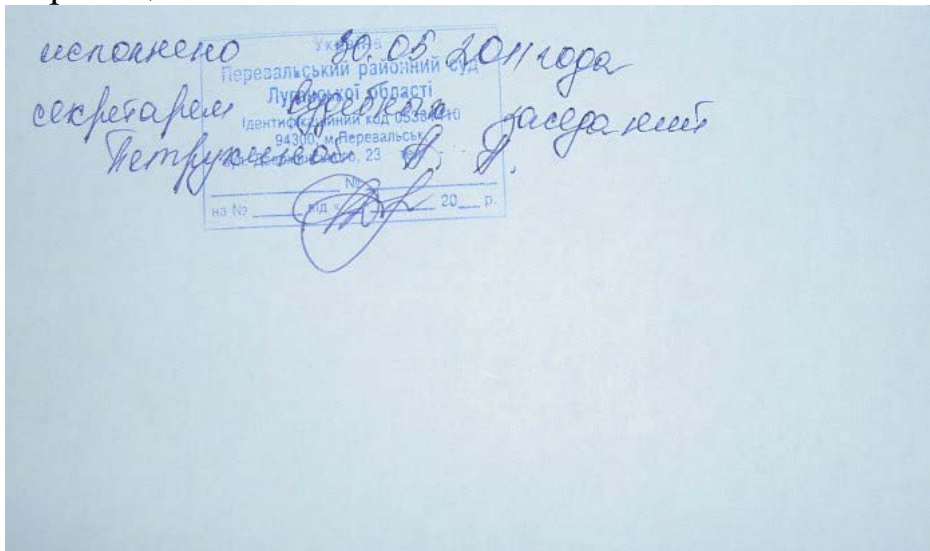 исполнено 30.05.2011 года
секретарем судебных заседаний
Петрухиной
Україна
Перевальський районний суд
Луганської області
Ідентифікаційний код
94300, м.Перевальськ
23
№
на № від « 20 р.